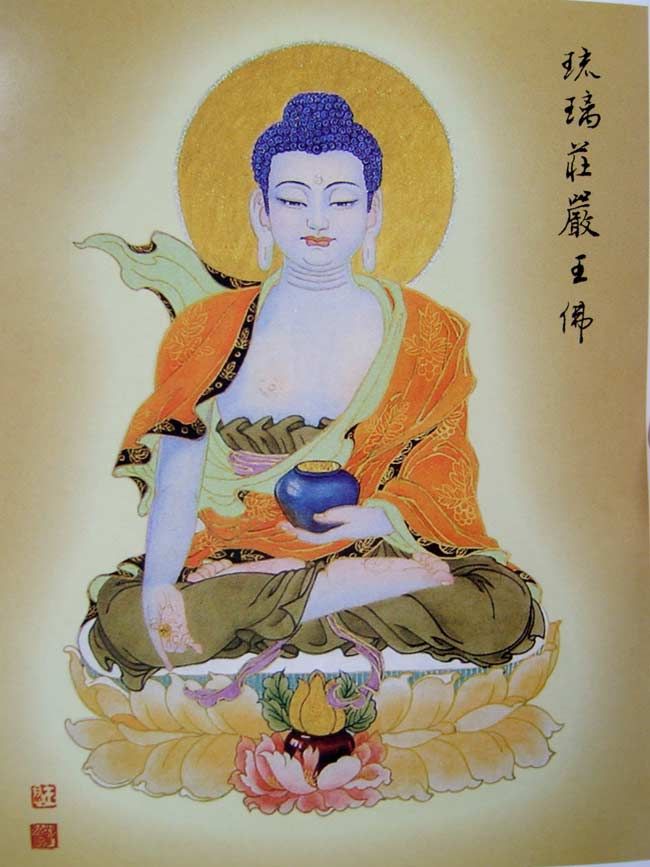 琉璃莊嚴王佛